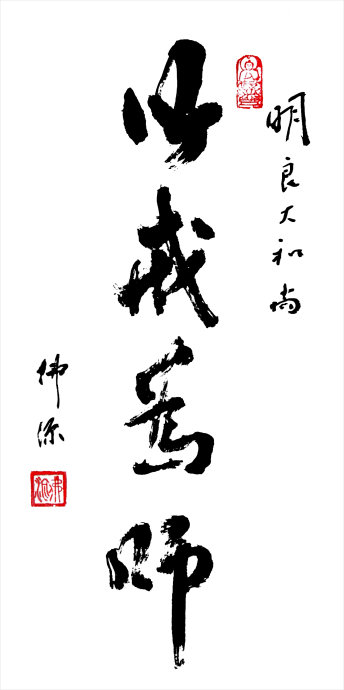 明良大和尚
以戒為师
佛源